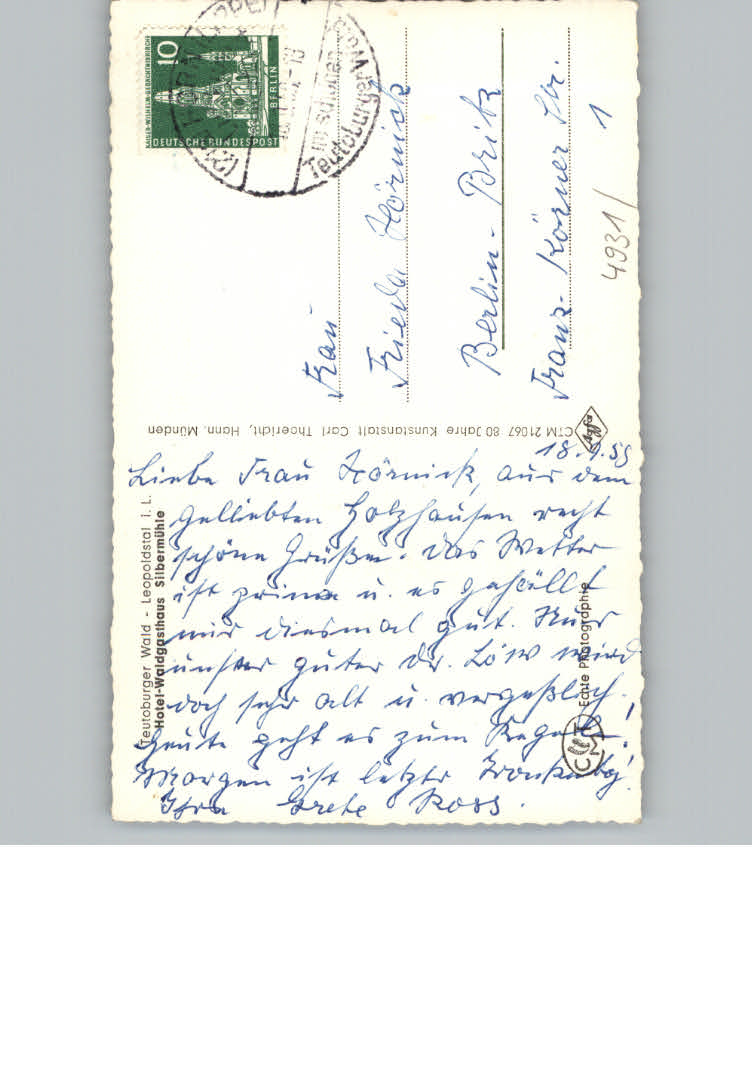 10
KAISER-WILHELM-GEDÄCHTNISKIRCHE
BERLIN
DEUTSCHE BUNDESPOST
im schönen
Teutoburger Wald
Frau
Frieda Hörnick
Berlin-Britz
Franz-Körner Str. 1
4931/
CTM 21067 80 Jahre Kunstanstalt Carl Thoericht, Hann. Münden
Agfa
Teutoburger Wald - Leopoldstal i. L.
Hotel-Waldgasthaus Silbermühle
Echte Photographie
CTM
18.9.59
Liebe Frau Hörnick, aus dem
geliebten Holzhausen recht
schöne Grüße. Das Wetter
ist prima u. es gefällt
mir diesmal gut. Nur
unser guter Dr. Löw wird
doch sehr alt u. vergeßlich.
Heute geht es zum Kegeln!
Morgen ist letzter
Ihre Grete Koss.